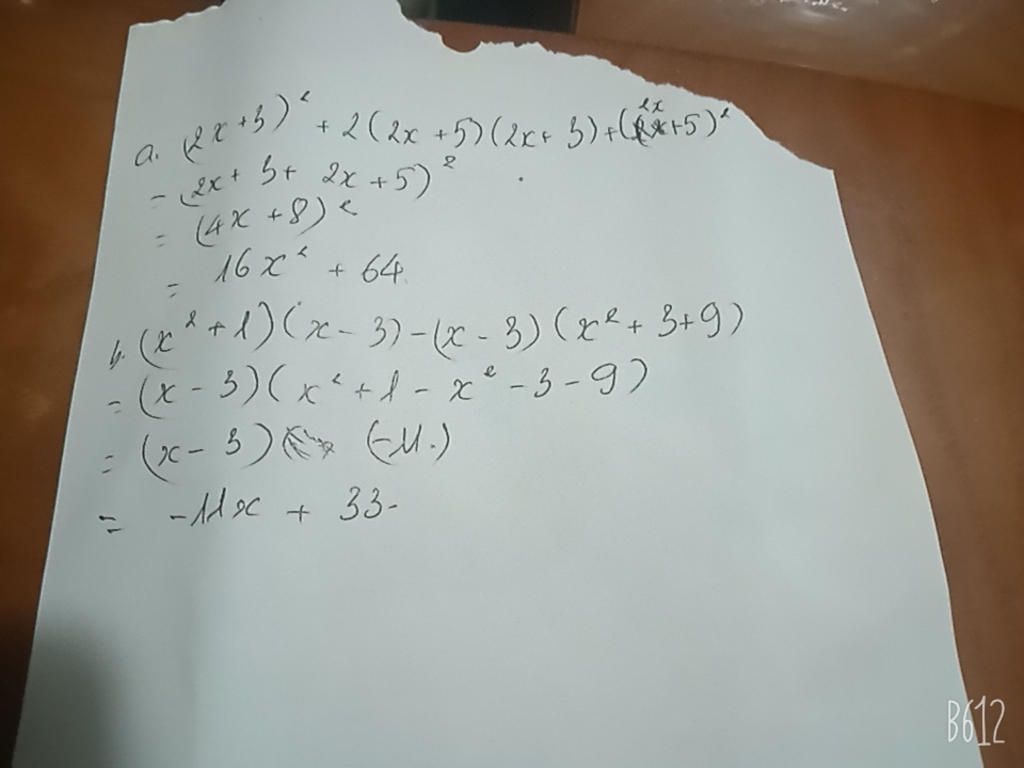 a. (2x+3)² + 2(2x+5)(2x+3)+(2x+5)²
= (2x+3+ 2x+5)²
= (4x+8)²
= 16x² + 64
b. (x²+1)(x-3)-(x-3)(x²+3+9)
= (x-3)(x²+1-x²-3-9)
= (x-3) (-11.)
= -11x + 33-
B612